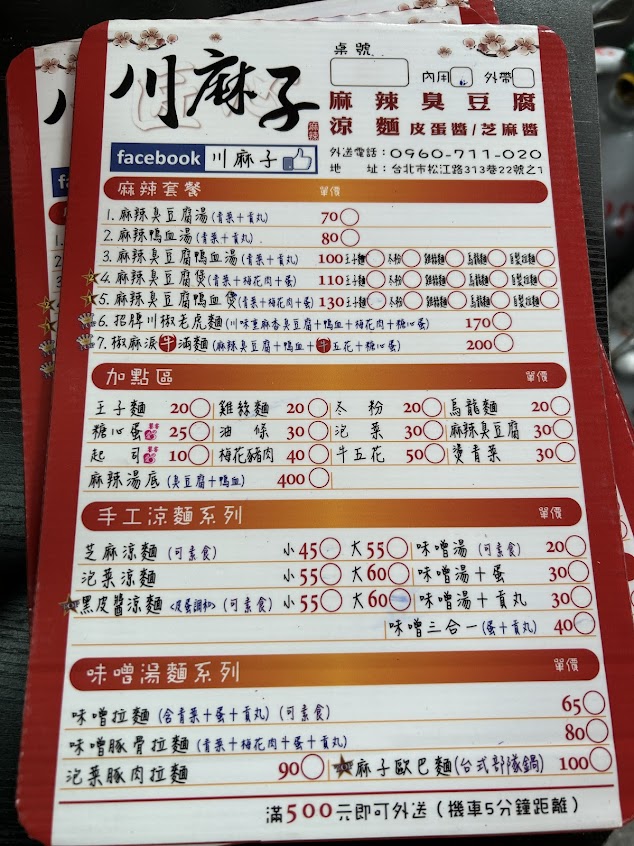 桌號
內用 外帶
川麻子
麻辣臭豆腐
涼麵 皮蛋醬/芝麻醬
麻辣
facebook 川麻子
外送電話:0960-711-020
地 址:台北市松江路313巷22號之1
麻辣套餐 單價
1. 麻辣臭豆腐湯(青菜+貢丸) 70
2. 麻辣鴨血湯(青菜+貢丸) 80
3. 麻辣臭豆腐鴨血湯(青菜+貢丸) 100 王子麵 冬粉 雞絲麵 烏龍麵
4. 麻辣臭豆腐煲(青菜+梅花肉+蛋) 110 王子麵 冬粉 雞絲麵 烏龍麵
5. 麻辣臭豆腐鴨血煲(青菜+梅花肉+蛋) 130 王子麵 冬粉 雞絲麵 烏龍麵
6. 招牌川椒老虎麵(川味重麻香臭豆腐+鴨血+梅花肉+糖心蛋) 170
7. 椒麻滾牛滿麵(麻辣臭豆腐+鴨血+牛五花+糖心蛋) 200
加點區 單價
王子麵 20 雞絲麵 20 冬粉 20 烏龍麵 20
糖心蛋 25 油條 30 泡菜 30 麻辣臭豆腐 30
起司 10 梅花豬肉 40 牛五花 50 燙青菜 30
麻辣湯底(臭豆腐+鴨血) 400
手工涼麵系列 單價
芝麻涼麵(可素食) 小45 大55 味噌湯(可素食) 20
泡菜涼麵 小55 大60 味噌湯+蛋 30
黑皮醬涼麵<皮蛋調和>(可素食) 小55 大60 味噌湯+貢丸 30
味噌三合一(蛋+貢丸) 40
味噌湯麵系列 單價
味噌拉麵(含青菜+蛋+貢丸)(可素食) 65
味噌豚骨拉麵(青菜+梅花肉+蛋+貢丸) 80
泡菜豚肉拉麵 90 麻子歐巴麵(台式部隊鍋) 100
滿500元即可外送(機車5分鐘距離)